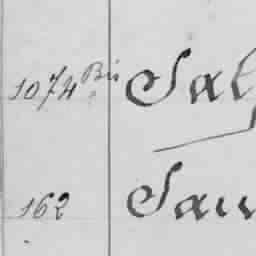 1074 Bis Sal
162 Sau